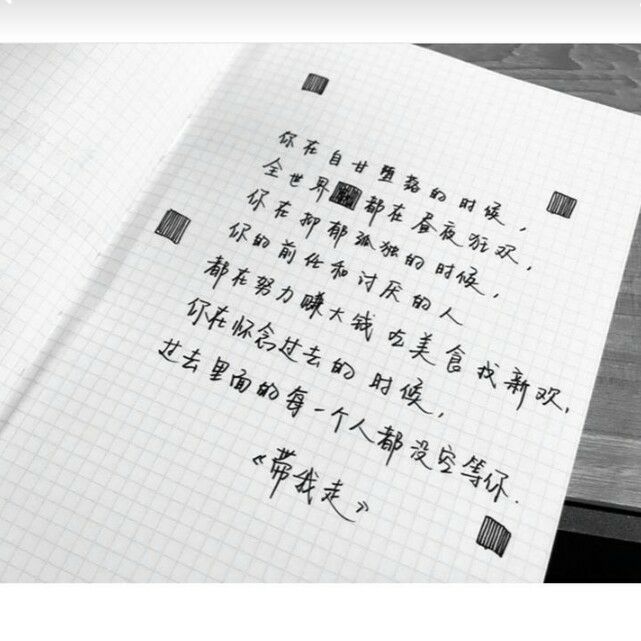 你在自甘堕落的时候，
全世界都在昼夜狂欢，
你在抑郁孤独的时候，
你的前任和讨厌的人
都在努力赚大钱吃美食找新欢，
你在怀念过去的时候，
过去里面的每一个人都没空等你.
《带我走》